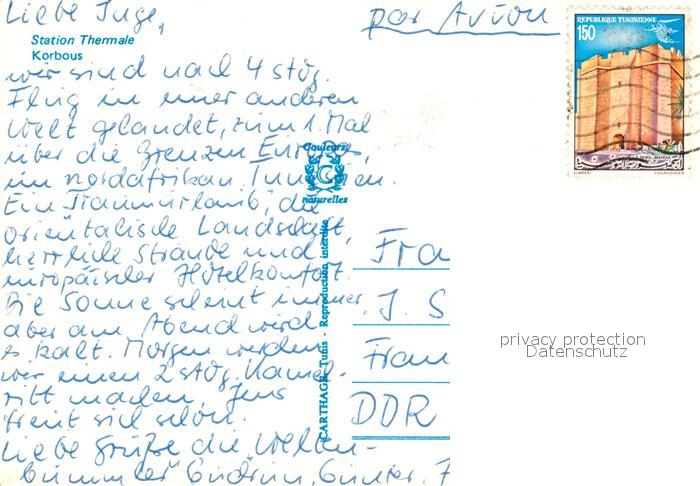 Liebe Inge,
par Avion
Station Thermale
Korbous
wir sind nach 4 stdg.
Flug in einer anderen
Welt gelandet, zum 1. Mal
über die Grenzen Europas,
im nordafrikan. Tunesien.
Ein Traumurlaub, die
orientalische Landschaft,
herrliche Strände und
europäischer Hotelkomfort.
Die Sonne scheint immer,
aber am Abend wird
es kalt. Morgen werden
wir einen 2 stdg. Kamel-
ritt machen, Jens
freut sich schon.
Liebe Grüße die Welten-
bummler Gudrun, Günter, 
Couleurs
naturelles
CARTHAGE - Tunis - Reproduction interdite
REPUBLIQUE TUNISIENNE
150
COURVOISIER
Fra
J. S
Fran
DDR
privacy protection
Datenschutz